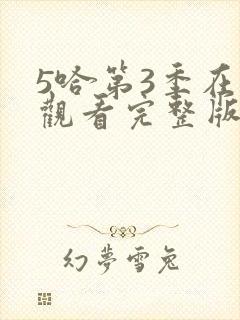 5哈第3季在
觀看完整版
幻夢雪兔